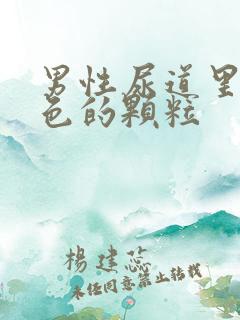 男性尿道里
色的顆粒
楊建蕊
未经同意禁止转载